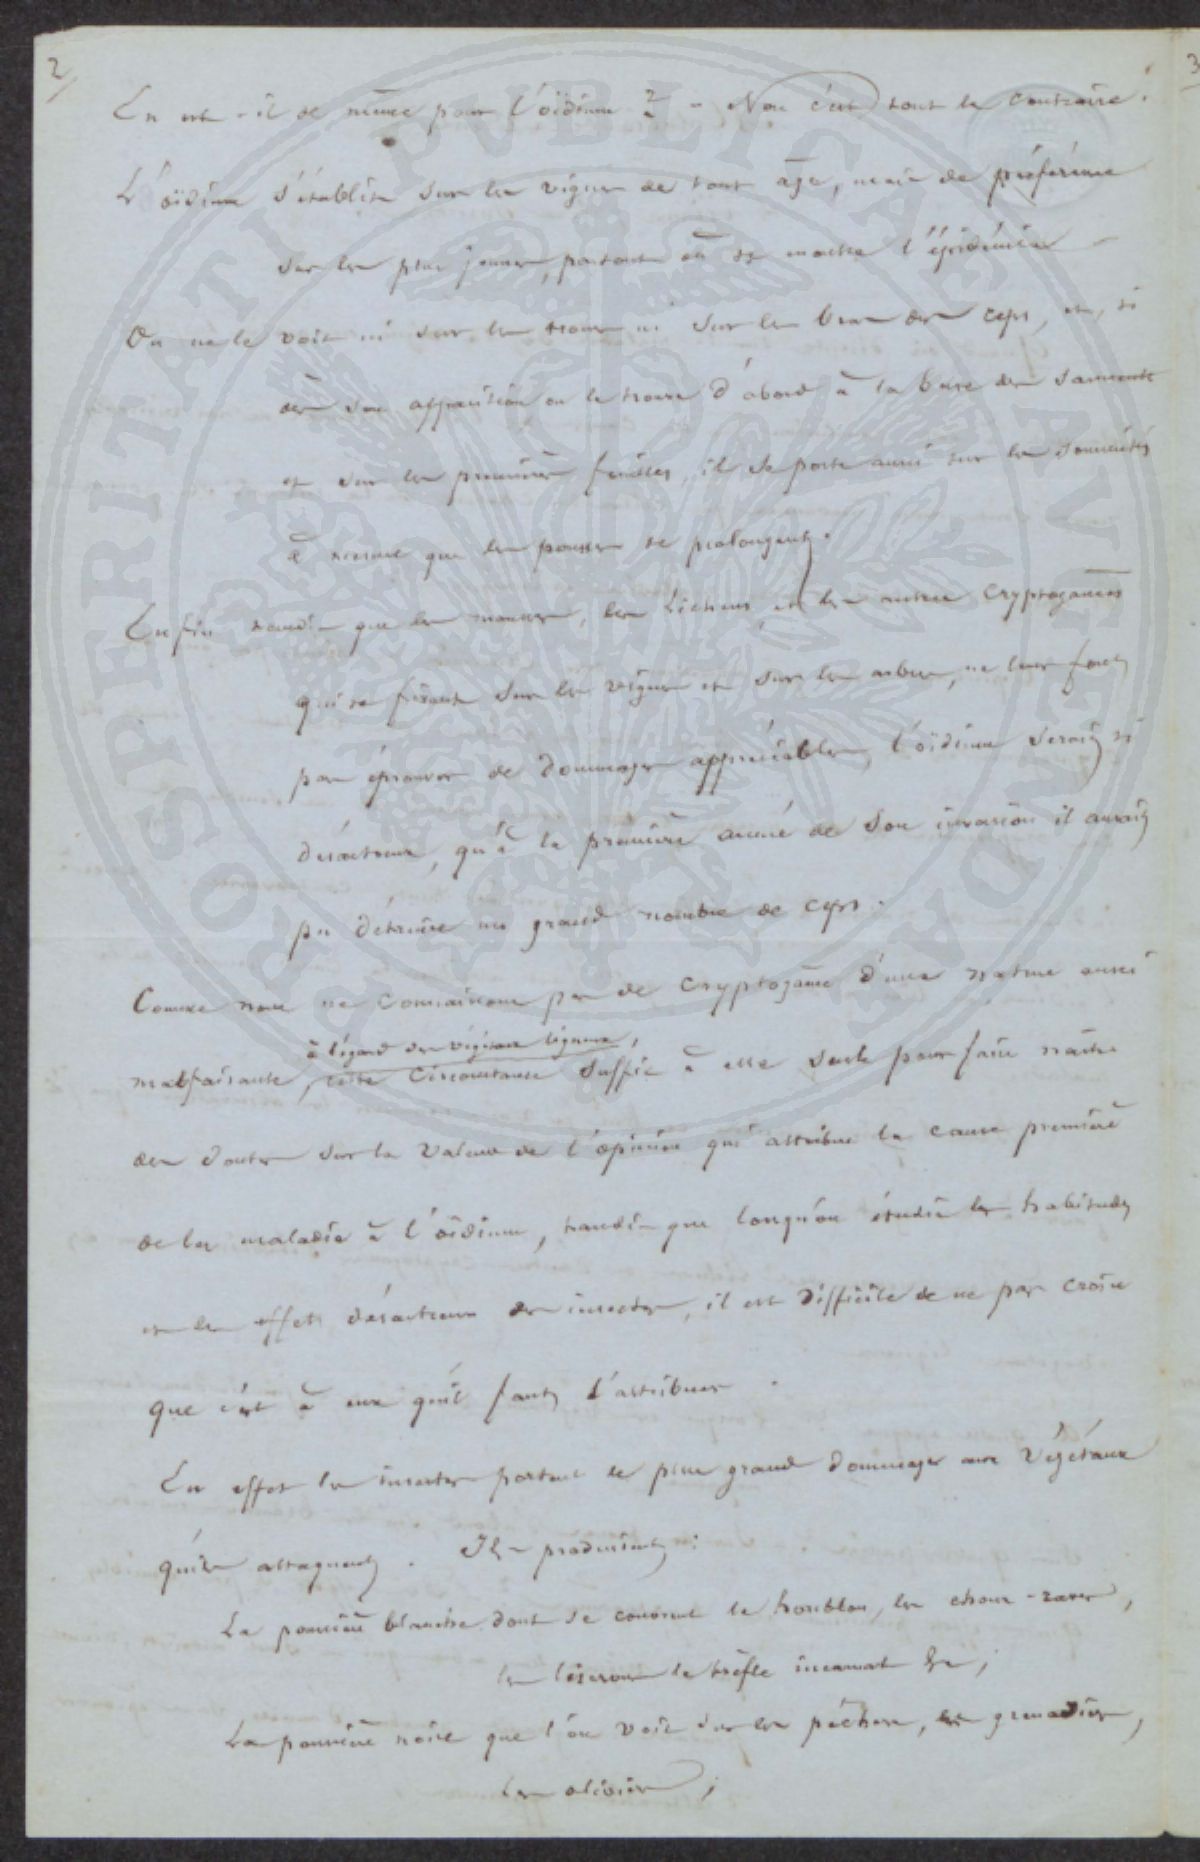 2/
3
PROSPERITATI PVBLICAE AVGENDAE
En est-il de même pour l'oïdium ? - Non c'est tout le contraire.
L'oïdium s'établit sur les vignes de tout âge, mais de préférence
sur les plus jeunes, partout où se montre l'épidémie -
On ne le voit ni sur les troncs ni sur les bras des ceps, et, si
dès son apparition on le trouve d'abord à la base des sarments
et sur les premières feuilles, il se porte aussi sur les sommités
à mesure que les pousses se prolongent.
Enfin tandis que les mousses, les Lichens, et les autres Cryptogames
qui se fixent sur les vignes et sur les arbres, ne leur font
pas éprouver de dommages appréciables, l'oïdium serait si
désastreux, qu'à la première année de son invasion il aurait
pu détruire un grand nombre de ceps.
Comme nous ne connaissons pas de Cryptogame d'une nature aussi
à l'égard des végétaux ligneux,
malfaisante, cette circonstance suffit à elle seule pour faire naître
des doutes sur la valeur de l'opinion qui attribue la cause première
de la maladie à l'oïdium, tandis que lorsqu'on étudie les habitudes
et les effets désastreux des insectes, il est difficile de ne pas croire
que c'est à eux qu'il faut l'attribuer.
En effet les insectes portent le plus grand dommage aux végétaux
qu'ils attaquent. Ils produisent :
La poussière blanche dont se couvrent le houblon, les choux-raves,
les liserons le trèfle incarnat &c ;
La poussière noire que l'on voit sur les pêchers, les grenadiers,
les oliviers ;